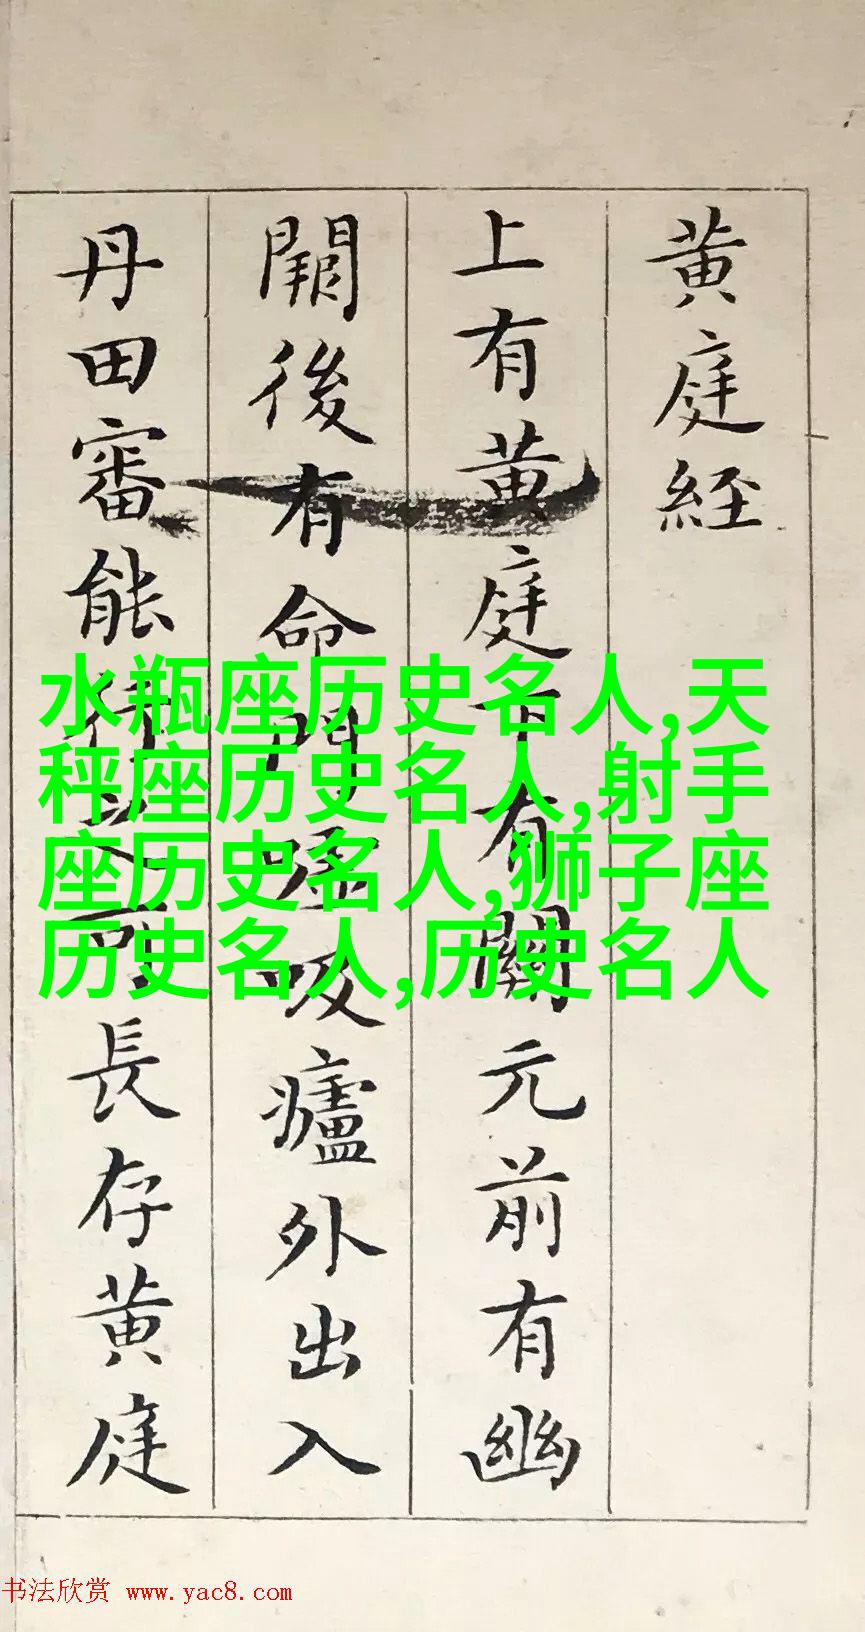 黄庭經
上有黄庭下有關元前有幽
闕後有命門嘘吸廬外出入
丹田審能行之可長存黄庭
水瓶座历史名人,天
秤座历史名人,射手
座历史名人,狮子座
历史名人,历史名人
书法欣赏 www.yac8.com